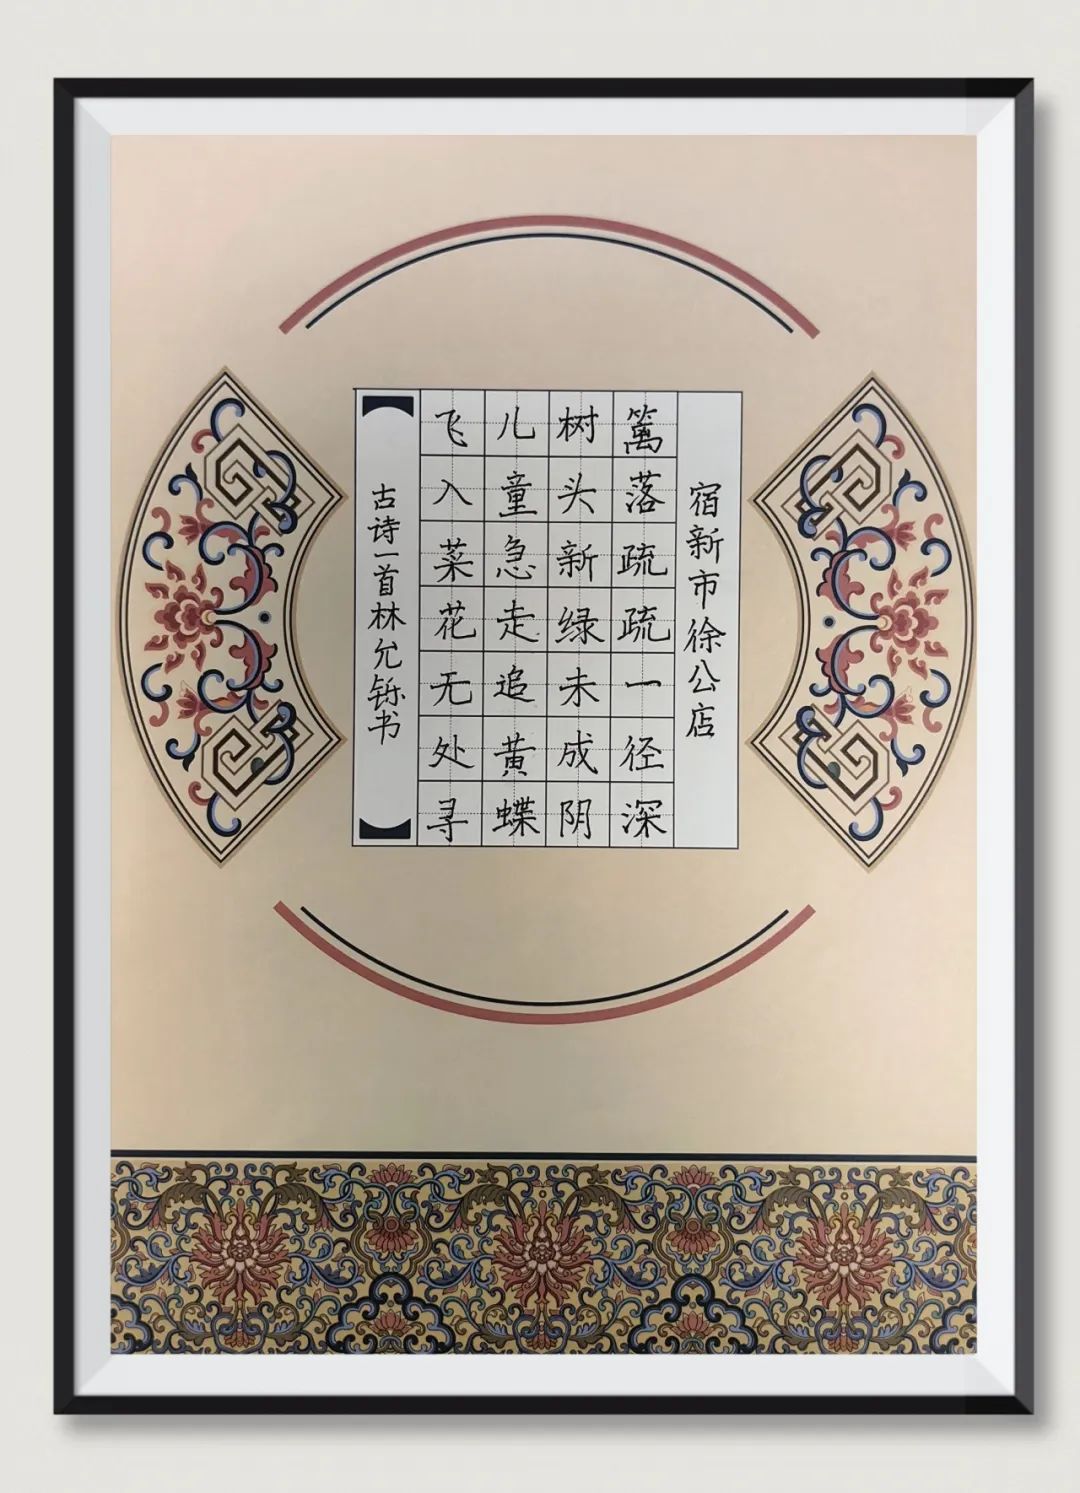 宿新市徐公店
篱落疏疏一径深
树头新绿未成阴
儿童急走追黄蝶
飞入菜花无处寻
古诗一首林允铄书